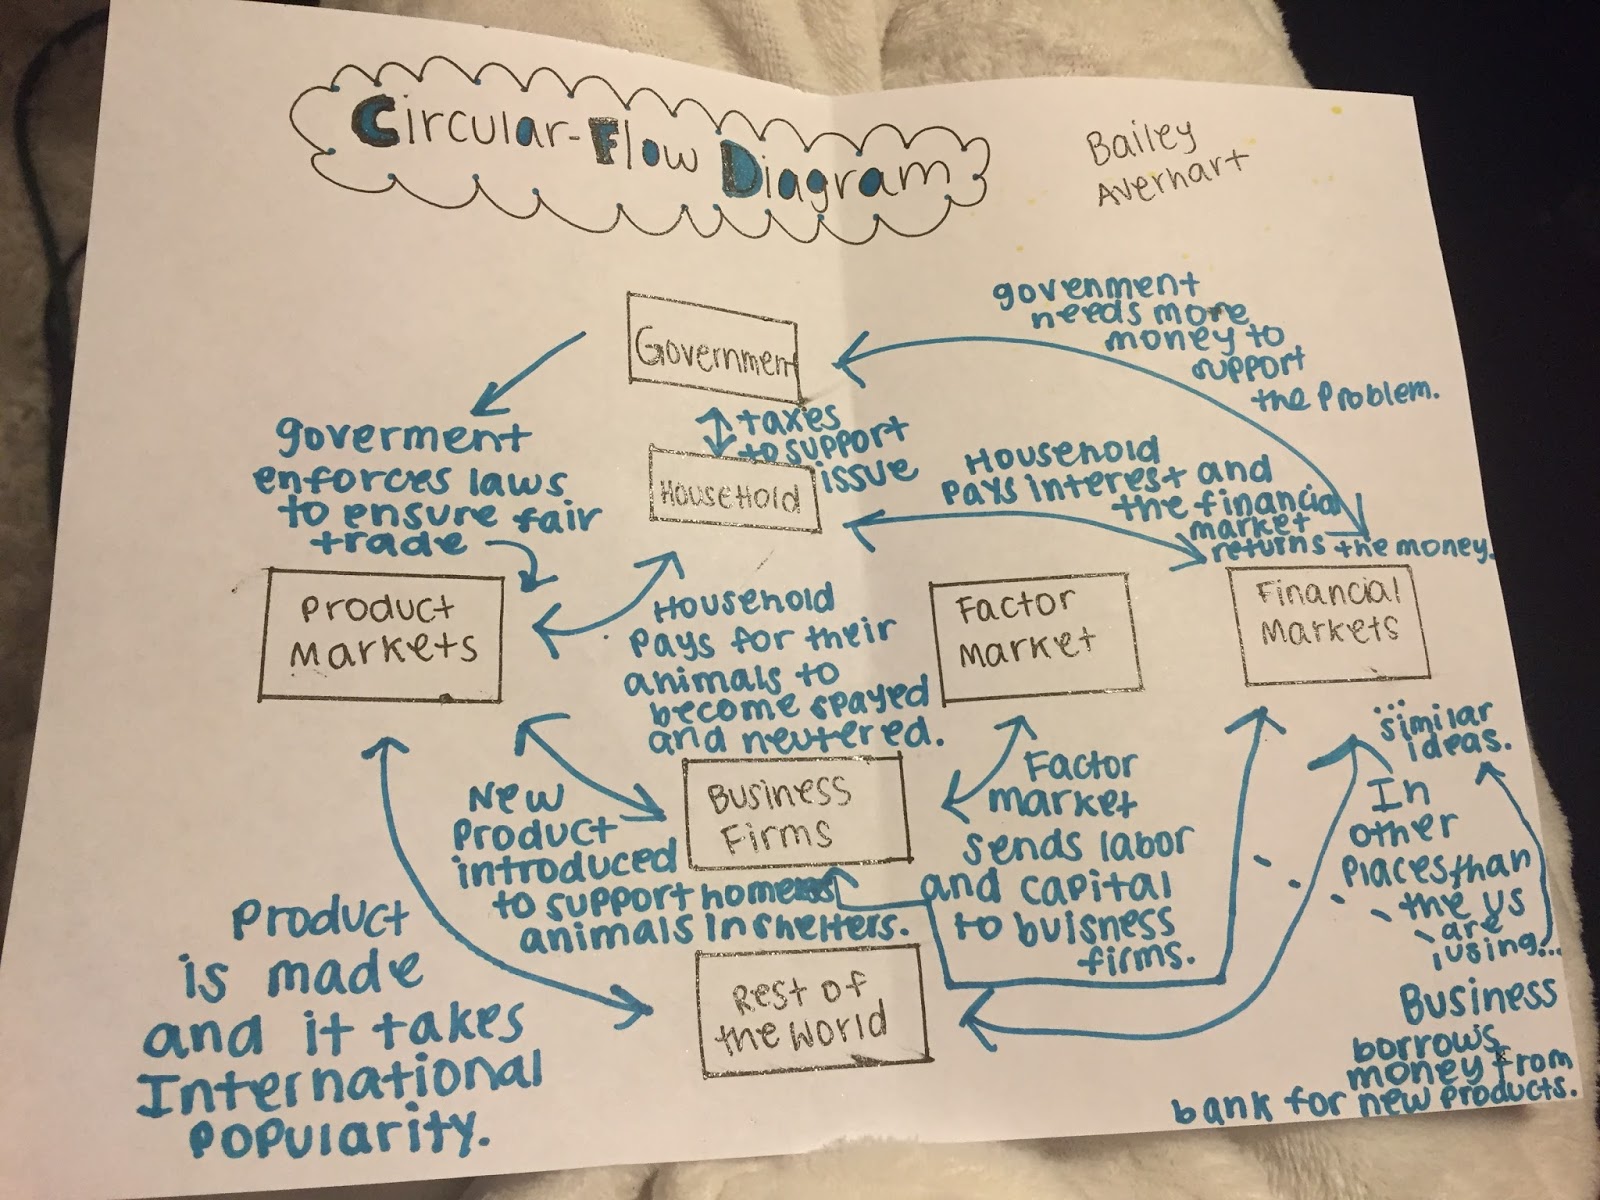 Circular-Flow Diagram
Bailey
Averhart
Government
govenment
needs more
money to
support
the problem.
taxes
to support
issue
Household
goverment
enforces laws
to ensure fair
trade
Household
pays interest and
the financial
market
returns the money.
Product
Markets
Household
pays for their
animals to
become spayed
and neutered.
Factor
Market
Financial
Markets
New
product
introduced
to support homeless
animals in shelters.
Business
Firms
Factor
market
sends labor
and capital
to buisness
firms.
...similar
ideas.
In
other
places than
the US
are
using...
Product
is made
and it takes
International
popularity.
Rest of
the World
Business
borrows
money from
bank for new products.